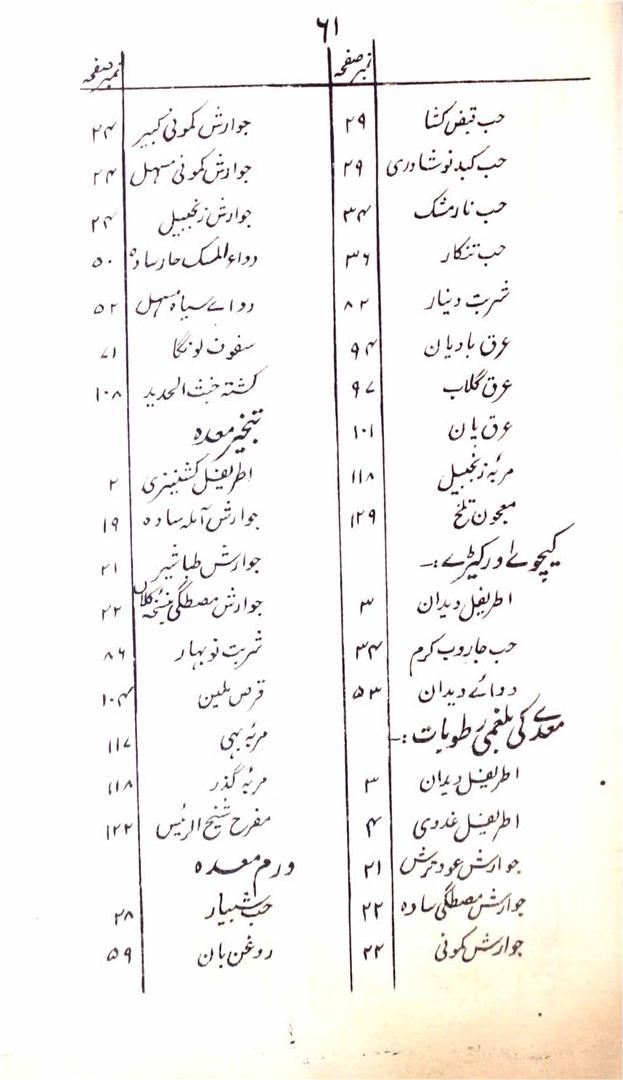 ۶۱
نمبر صفحہ
حب قبض کشا ۲۹
حب کبد نوشادری ۲۹
حب نار مشک ۳۴
حب تنکار ۳۶
شربت دینار ۸۲
عرق بادیان ۹۴
عرق گلاب ۹۷
عرق پان ۱۰۱
مربہ زنجبیل ۱۱۸
معجون تلخ ۱۲۹
کیچوے اور کیڑے :-
اطریفل دیدان ۳
حب جاروب کرم ۳۴
دوائے دیدان ۵۳
معدے کی بلغمی رطوبات :-
اطریفل دیدان ۳
اطریفل غددی ۴
جوارش عود ترش ۲۱
جوارش مصطگی سادہ ۲۲
جوارش کمونی ۲۲
نمبر صفحہ
جوارش کمونی کبیر ۲۴
جوارش کمونی مسہل ۲۴
جوارش زنجبیل ۲۴
دواء المسک حار سادہ ۵۰
دوائے سیاہ مسہل ۵۲
سفوف لونگا ۷۱
کشتہ خبث الحدید ۱۰۸
تبخیر معدہ
اطریفل کشنیزی ۲
جوارش آملہ سادہ ۱۹
جوارش طباشیر ۲۱
جوارش مصطگی بنسخہ کلاں ۲۲
شربت نوبہار ۸۶
قرص ملین ۱۰۴
مربہ بہی ۱۱۷
مربہ گذر ۱۱۸
مفرح شیخ الرئیس ۱۲۲
ورم معدہ
حب شبیار ۲۸
روغن بان ۵۹